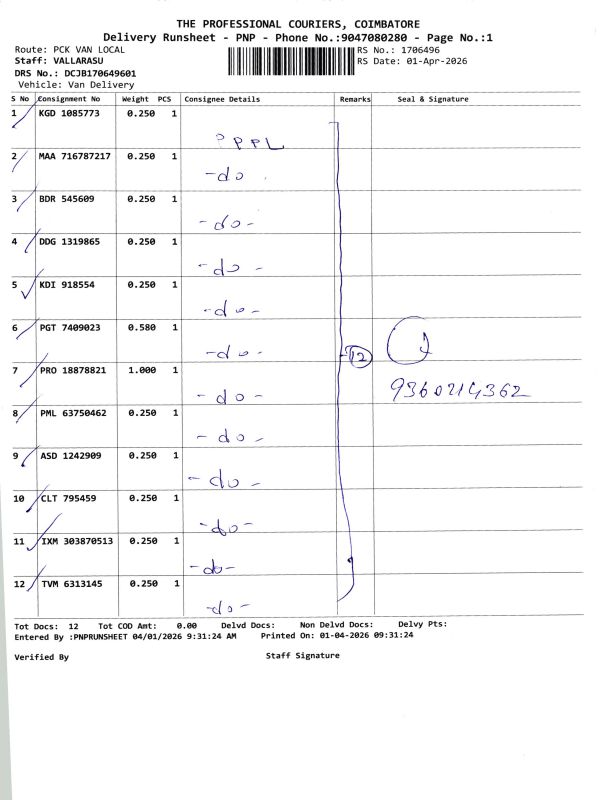 THE PROFESSIONAL COURIERS, COIMBATORE
Delivery Runsheet - PNP - Phone No.:9047080280 - Page No.:1
Route: PCK VAN LOCAL RS No.: 1706496
Staff: VALLARASU RS Date: 01-Apr-2026
DRS No.: DCJB170649601
Vehicle: Van Delivery
S No Consignment No Weight PCS Consignee Details Remarks Seal & Signature
1 KGD 1085773 0.250 1
PPPL
2 MAA 716787217 0.250 1
-do
3 BDR 545609 0.250 1
-do-
4 DDG 1319865 0.250 1
-do-
5 KDI 918554 0.250 1
-do-
6 PGT 7409023 0.580 1
-do- 12
7 PRO 18878821 1.000 1
-do- 9360214362
8 PML 63750462 0.250 1
-do-
9 ASD 1242909 0.250 1
-do-
10 CLT 795459 0.250 1
-do-
11 IXM 303870513 0.250 1
-do-
12 TVM 6313145 0.250 1
-do-
Tot Docs: 12 Tot COD Amt: 0.00 Delvd Docs: Non Delvd Docs: Delvy Pts:
Entered By :PNPRUNSHEET 04/01/2026 9:31:24 AM Printed On: 01-04-2026 09:31:24
Verified By Staff Signature